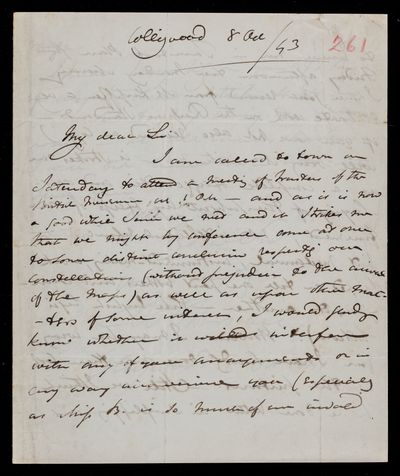 Collingwood 8 Oct
/43 261
My dear Sir
I am called to town on
Saturday to attend a meeting of Trustees of the
British Museum at 1 Oh – and as it is now
a good while since we met and it strikes me
that we might by conference come at once
to some distinct conclusion respectg our
constellations (without prejudice to the arrival
of the Maps) as well as upon other mat-
-ters of some interest, I would gladly
know whether it would interfere
with any of your arrangements or in
any way inconvenience you (especially
as Miss B. is so much of an invalid